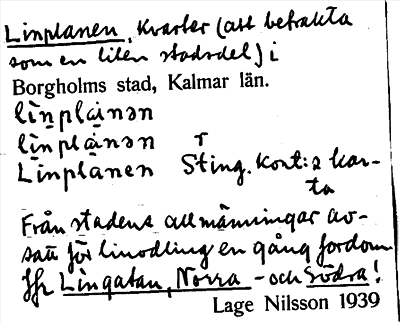 Linplanen, Kvarter (att betrakta
som en liten stadsdel) i
Borgholms stad, Kalmar län.
li̇̀n̥plạ́inən
li̇̀n̥plạ́inən
Linplanen Sting. Kont: 2 kar-
ta
Från stadens allmänningar av-
satt för linodling en gång fordom
Jfr Lingatan, Norra - och Södra!
Lage Nilsson 1939